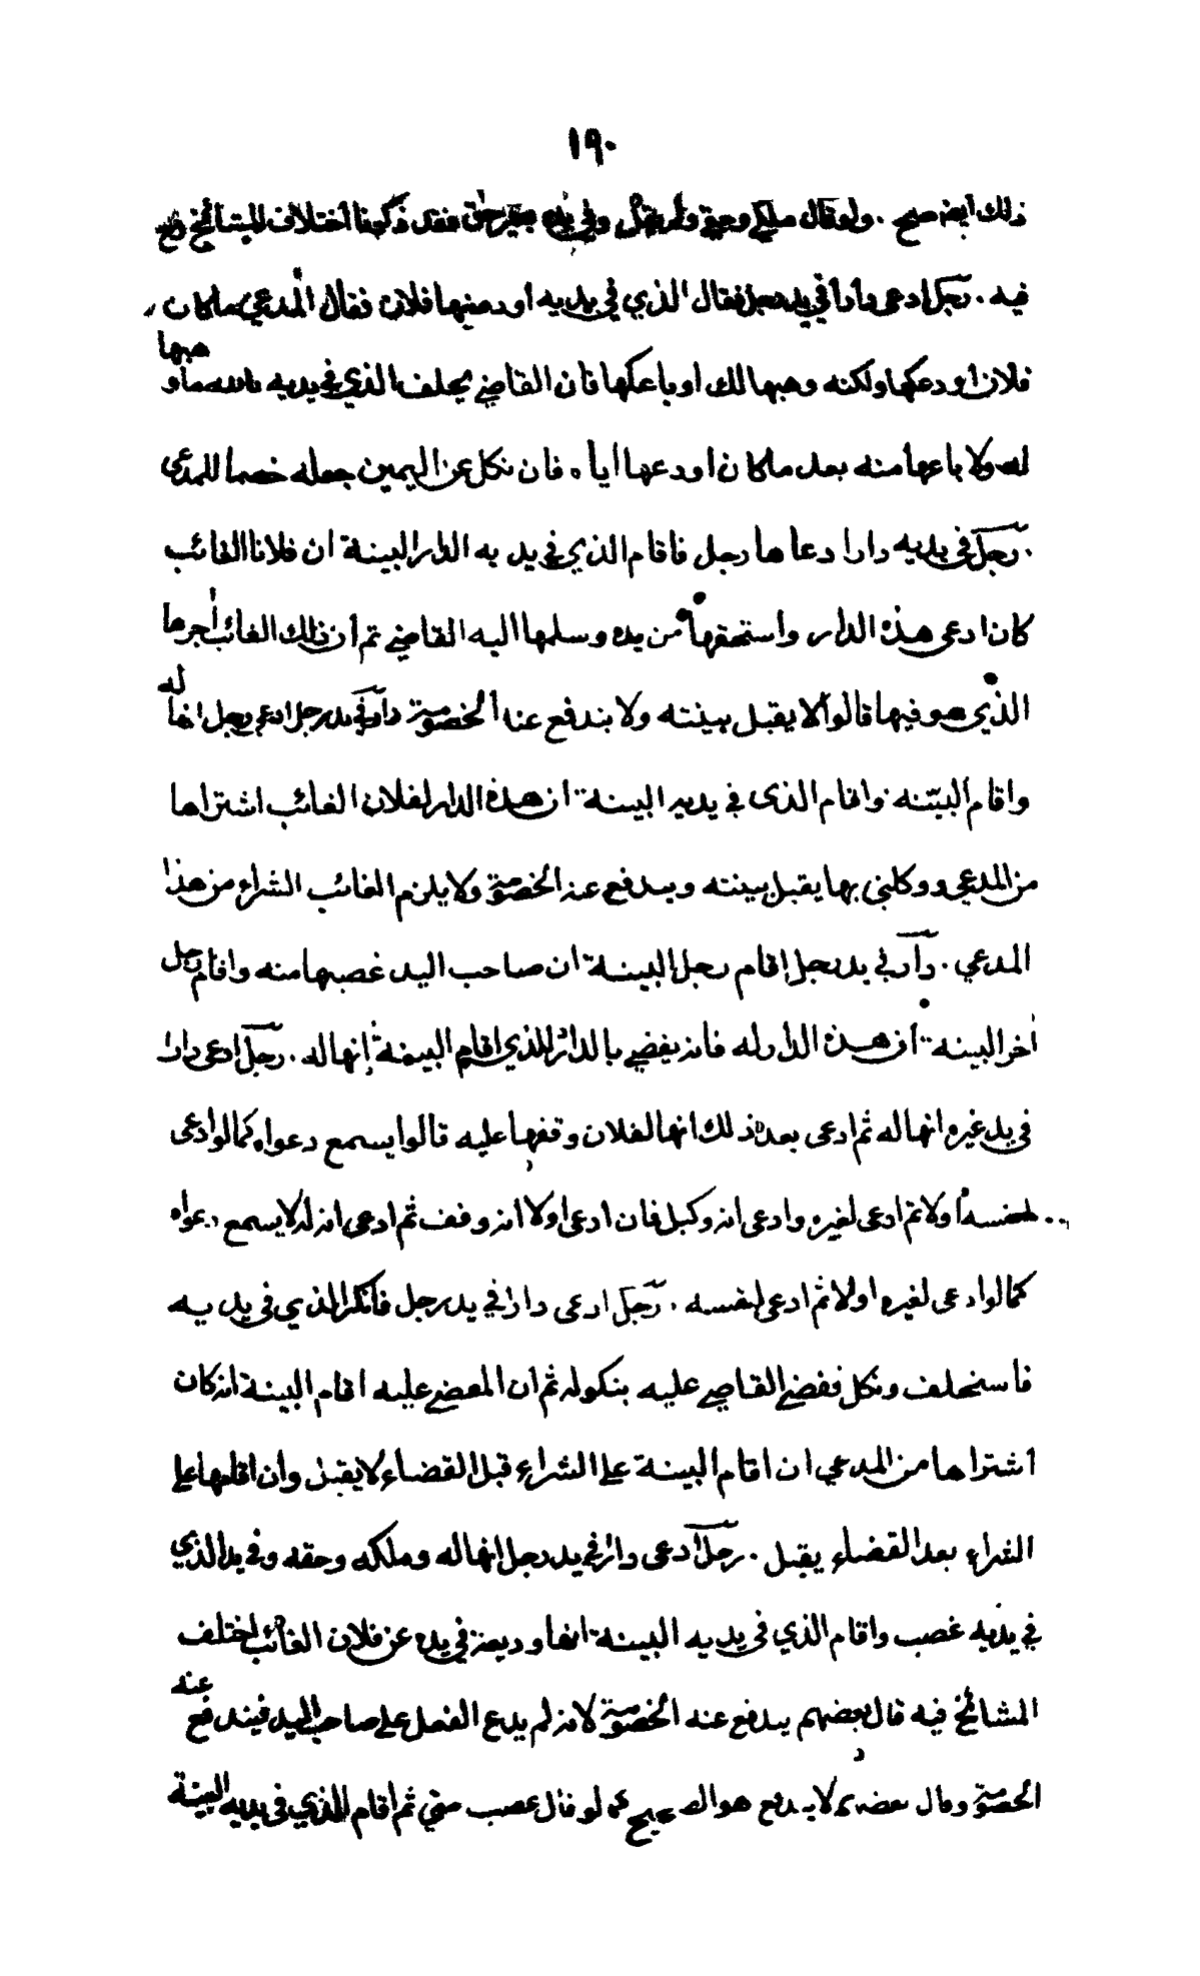 ١٩٠
ذلك ايضا صحيح . ولو قال ملكي وحقي ولم يقل وفي يده بغير حق فقد ذكرنا اختلاف المشائخ
فيه . رجل ادعى دارا في يد رجل فقال الذي في يديه اودعنيها فلان فقال المدعي ما كان
فلان اودعكها ولكنه وهبها لك او باعكها فان القاضي يحلف الذي في يديه بالله ما وهبها
له ولا باعها منه بعد ما كان اودعها اياه فان نكل عن اليمين جعله خصما للمدعى
. رجل في يديه دار ادعاها رجل فاقام الذي في يديه الدار البينة ان فلانا الغائب
كان ادعى هذه الدار واستحقها من يده وسلمها اليه القاضي ثم ان ذلك الغائب اجرها
الذي هو فيها قالوا لا يقبل بينته ولا يندفع عنه الخصومة دار في يد رجل ادعى رجل انها له
واقام البينه واقام الذى في يديه البينة ان هذه الدار لفلان الغائب اشتراها
من المدعي ووكلني بها يقبل بينته ويندفع عنه الخصومة ولا يلزم الغائب الشراء من هذا
المدعي . دار في يد رجل اقام رجل البينة ان صاحب اليد غصبها منه واقام رجل
اخر البينة ان هذه الدار له فانه يقضي بالدار للذي اقام البينة انها له . رجل ادعى دارا
في يد غيره انها له ثم ادعى بعد ذلك انها لفلان وقفها عليه قالوا يسمع دعواه كما لو ادعى
لنفسه اولا ثم ادعى لغيره وادعى انه وكيل فان ادعى اولا انه وقف ثم ادعى انه له لا يسمع دعواه
كما لو ادعى لغيره اولا ثم ادعى لنفسه . رجل ادعى دارا في يد رجل فانكر الذي في يديه
فاستحلف ونكل فقضى القاضي عليه بنكوله ثم ان المقضي عليه اقام البينة انه كان
اشتراها من المدعي ان اقام البينة على الشراء قبل القضاء لا يقبل وان اقامها على
الشراء بعد القضاء يقبل . رجل ادعى دارا في يد رجل انها له وملكه وحقه وفي يد الذي
في يديه غصب واقام الذي في يديه البينة انها وديعة في يده عن فلان الغائب اختلف
المشائخ فيه قال بعضهم يندفع عنه الخصومة لانه لم يدع الفعل على صاحب اليد فيندفع عنه
الخصومة وقال بعضهم لا يندفع هو الصحيح كما لو قال غصب مني ثم اقام الذي في يديه البينة